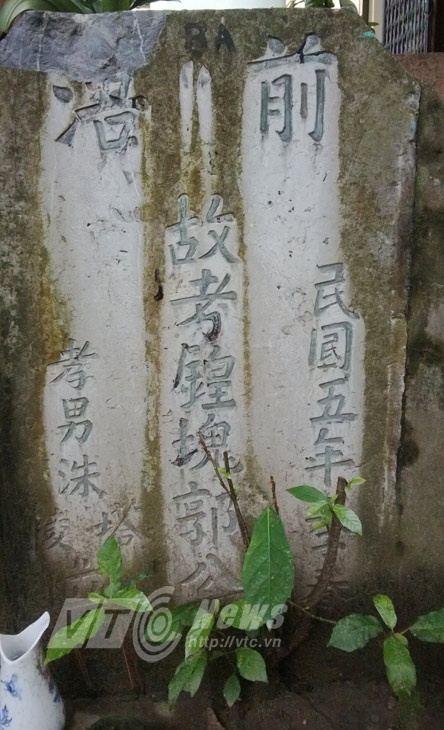 BA
前
浩
民國五年
故考鍠塊郭公
孝男洙
塔
VTC News
http://vtc.vn